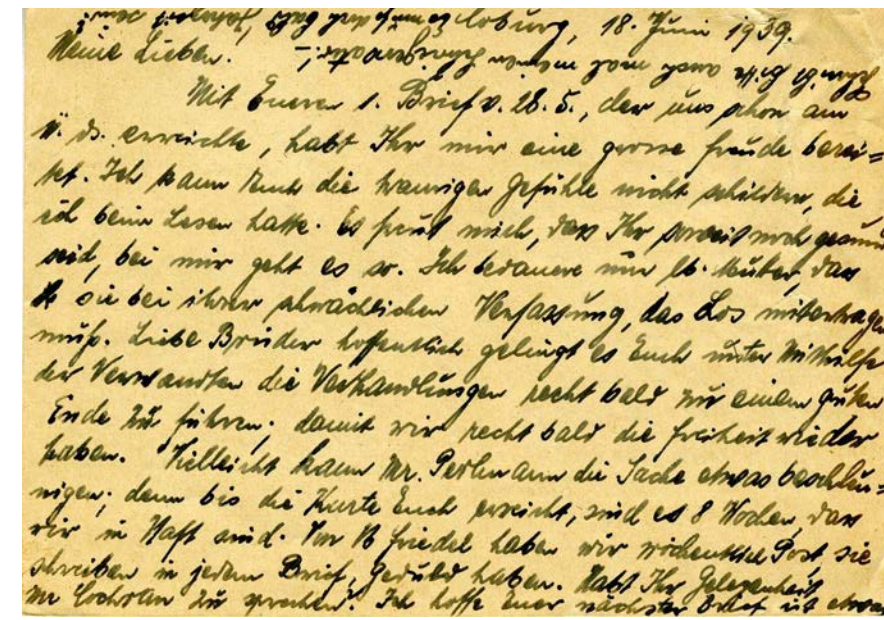 Coburg, 18. Juni 1939.
Meine Lieben.
Mit Eueren 1. Brief v. 28.5., der uns schon am
ds. erreichte, habt Ihr mir eine grosse Freude berei=
tet. Ich kann Euch die traurigen Gefühle nicht schildern, die
ich beim Lesen hatte. Es freut mich, dass Ihr soweit noch gesund
seid, bei mir geht es so. Ich bedauere nur lb. Mutter, dass
sie bei ihrer schwächlichen Verfassung, das Los mitertragen
muß. Liebe Brüder hoffentlich gelingt es Euch unter Mithilfe
der Verwandten die Verhandlungen recht bald zu einem guten
Ende zu führen; damit wir recht bald die Freiheit wieder
haben. Vielleicht kann Mr. Perlmann die Sache etwas beschleu=
nigen; denn bis die Karte Euch erreicht, sind es 8 Wochen, dass
wir in Haft sind. Von Friedel haben wir wöchentlich Post, sie
schreiben in jedem Brief, Geduld haben. Habt Ihr Gelegenheit
Mr zu sprechen? Ich hoffe Euer nächster Brief ist etwas